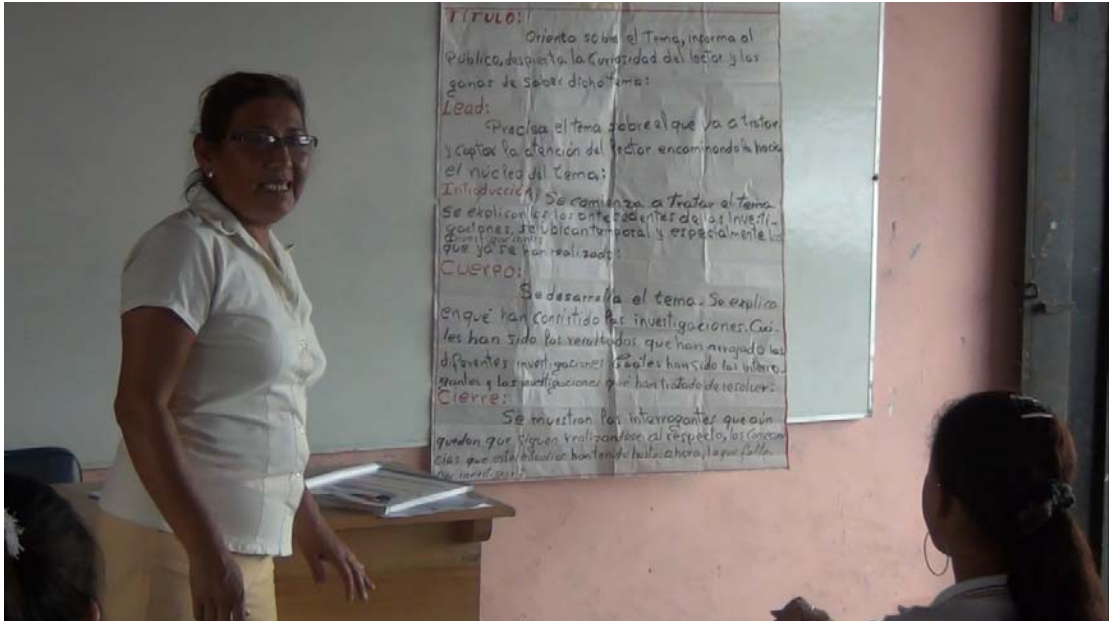 TÍTULO:
Orienta sobre el Tema, informa al
Público, despierta la Curiosidad del lector y las
ganas de saber dicho tema:
Lead:
Precisa el tema sobre el que va a tratar
y captar la atención del lector encaminandola hacia
el núcleo del tema:
Introducción: Se comienza a tratar el tema
Se explican los antecedentes de las Investi-
gaciones, se ubican temporal y especialmente las
investigaciones
que ya se han realizado:
Cuerpo:
Se desarrolla el tema. Se explica
en qué han consistido las investigaciones. Cuá-
les han sido los resultados que han arrojado las
diferentes investigaciones Cuáles han sido las interro-
gantes y las investigaciones que han tratado de resolver:
Cierre:
Se muestran las interrogantes que aún
quedan que siguen realizandose al respecto, las
cias que estudios han tenido hasta ahora, lo que falta
por investigar: